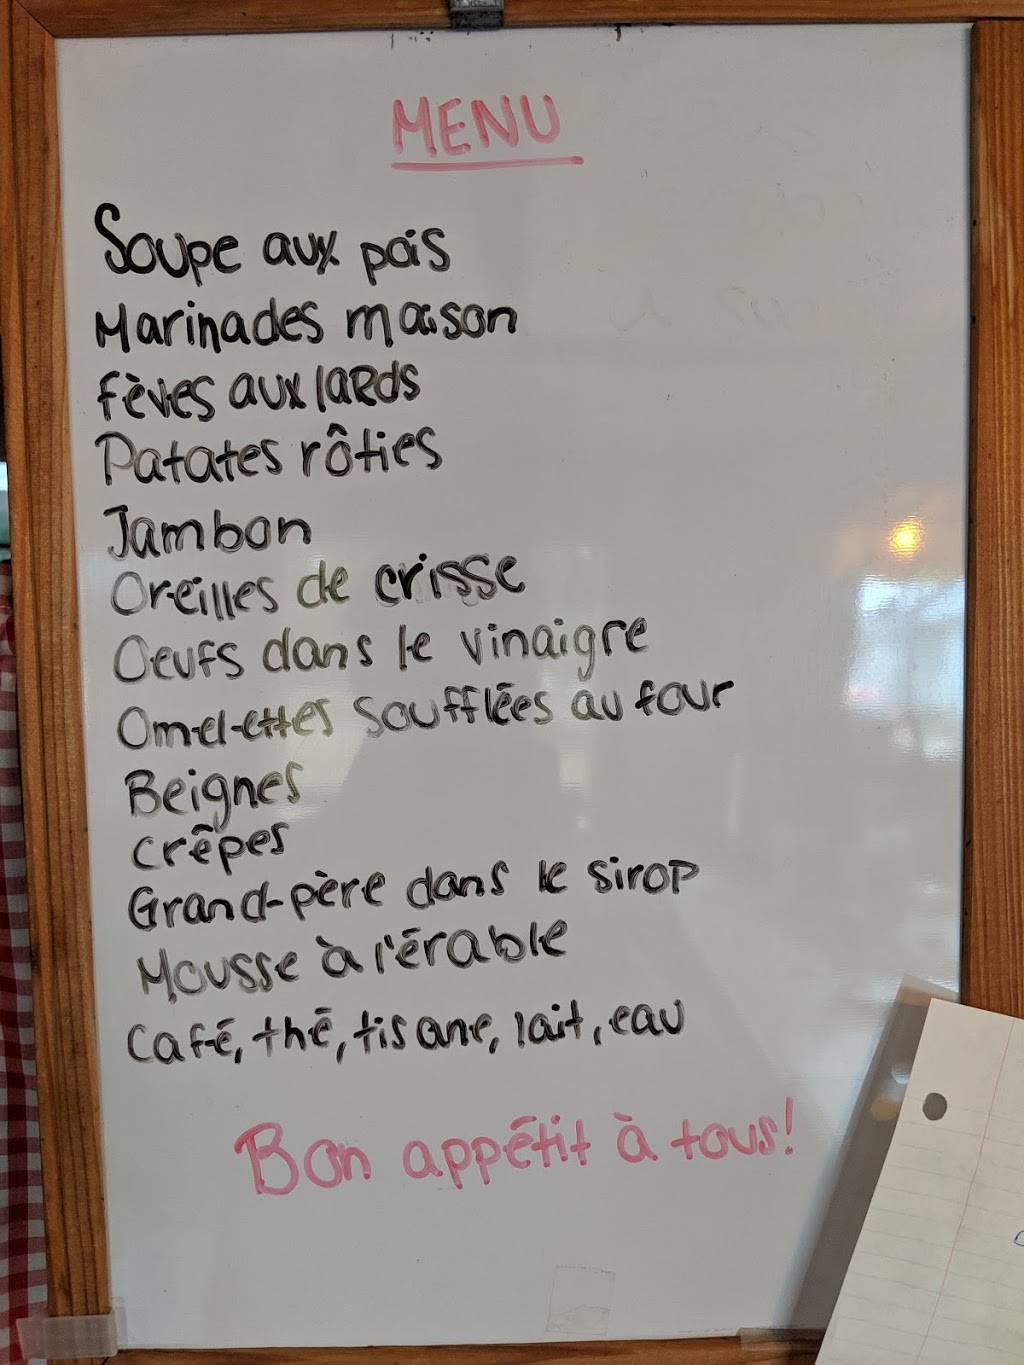 MENU
Soupe aux pois
Marinades maison
fèves aux lards
Patates rôties
Jambon
Oreilles de crisse
Oeufs dans le vinaigre
Omelettes soufflées au four
Beignes
crêpes
Grand-père dans le sirop
Mousse à l'érable
Café, thé, tisane, lait, eau
Bon appétit à tous!